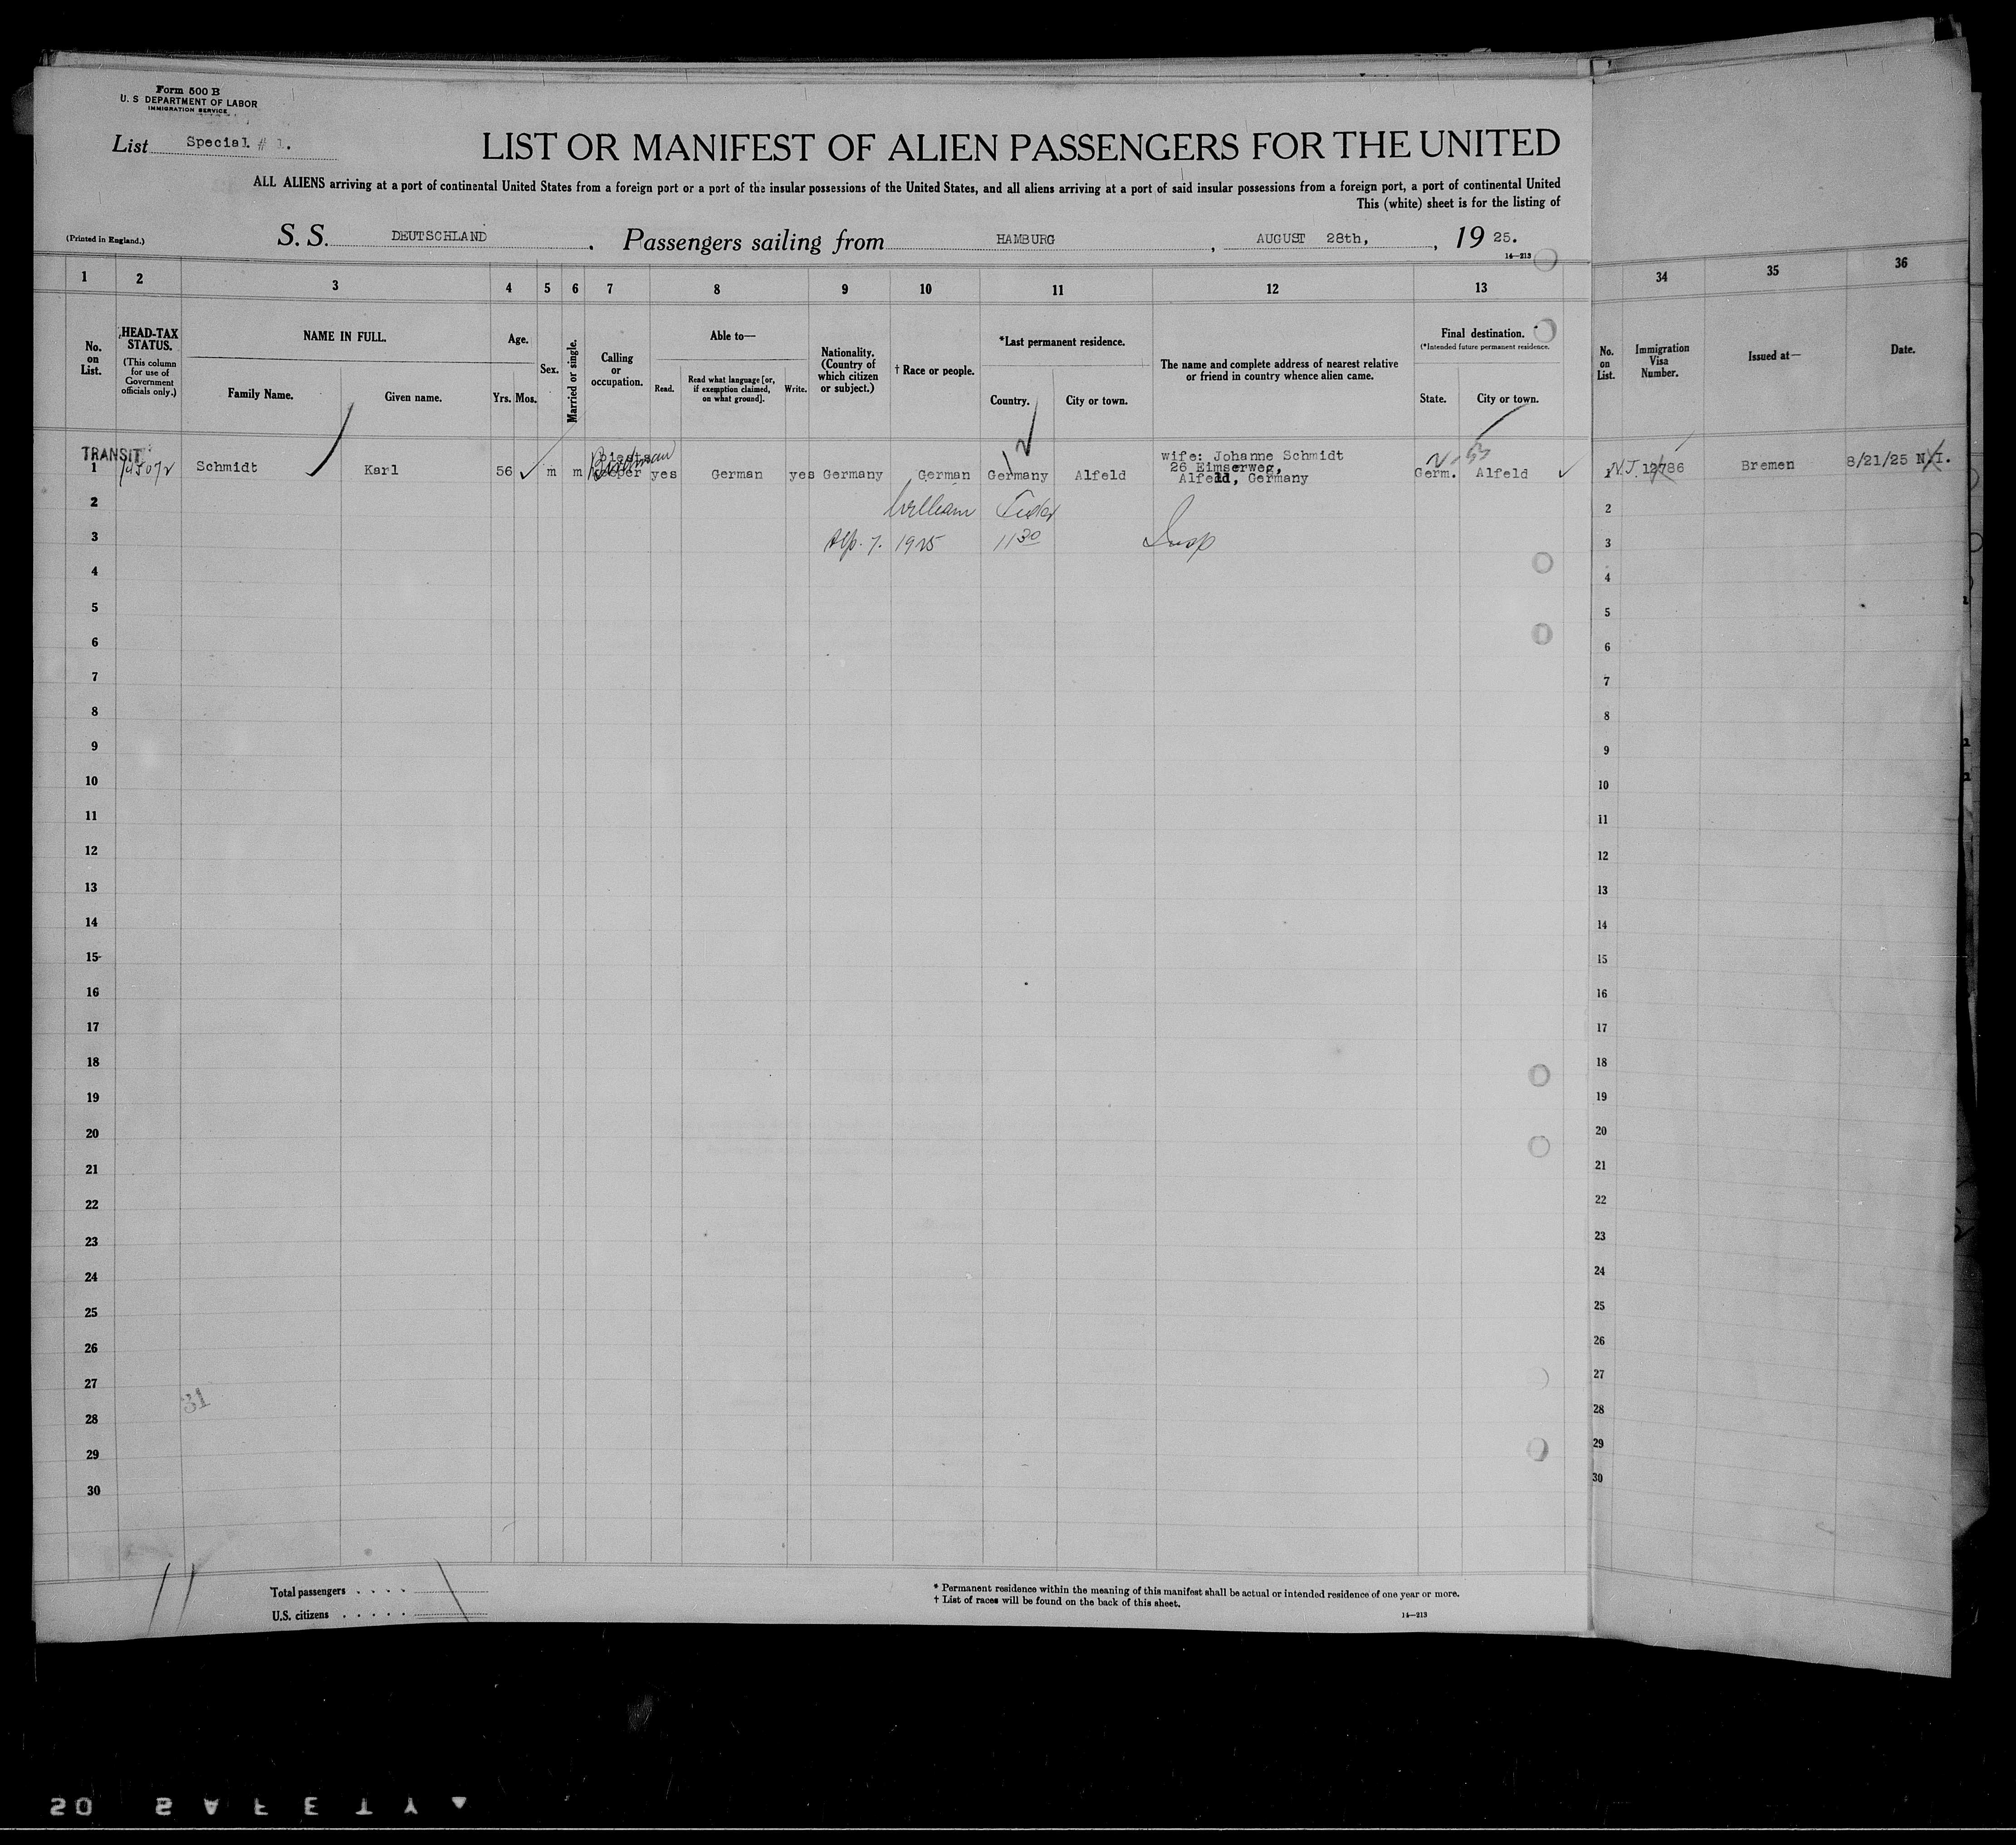 Form 500 B
U. S DEPARTMENT OF LABOR
IMMIGRATION SERVICE
List Special # 1.
LIST OR MANIFEST OF ALIEN PASSENGERS FOR THE UNITED
ALL ALIENS arriving at a port of continental United States from a foreign port or a port of the insular possessions of the United States, and all aliens arriving at a port of said insular possessions from a foreign port, a port of continental United
This (white) sheet is for the listing of
(Printed in England.)
S. S. DEUTSCHLAND . Passengers sailing from HAMBURG , AUGUST 28th, , 19 25.
14—213
1 2 3 4 5 6 7 8 9 10 11 12 13 34 35 36
No. on List.
HEAD-TAX STATUS.
(This column for use of Government officials only.)
NAME IN FULL.
Family Name.
Given name.
Age.
Yrs. Mos.
Sex.
Married or single.
Calling or occupation.
Able to—
Read.
Read what language [or, if exemption claimed, on what ground].
Write.
Nationality. (Country of which citizen or subject.)
† Race or people.
*Last permanent residence.
Country.
City or town.
The name and complete address of nearest relative or friend in country whence alien came.
Final destination.
(*Intended future permanent residence.
State.
City or town.
No. on List.
Immigration Visa Number.
Issued at—
Date.
TRANSIT
1 Schmidt Karl 56 m m yes German yes Germany German Germany Alfeld
wife: Johanne Schmidt
26 Eimserweg,
Alfeld, Germany
Germ. Alfeld
12786 Bremen 8/21/25 N.I.
2 William
2
3 Sep. 7. 1925 11 30 Insp
3
4
4
5
5
6
6
7
7
8
8
9
9
10
10
11
11
12
12
13
13
14
14
15
15
16
16
17
17
18
18
19
19
20
20
21
21
22
22
23
23
24
24
25
25
26
26
27
27
31
28
28
29
29
30
30
Total passengers . . . .
U.S. citizens . . . . .
* Permanent residence within the meaning of this manifest shall be actual or intended residence of one year or more.
† List of races will be found on the back of this sheet.
14—213
SAFETY